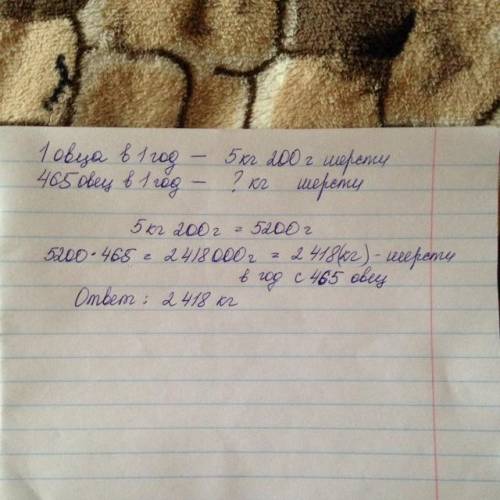 1 овца в 1 год — 5 кг 200 г шерсти
465 овец в 1 год — ? кг шерсти
5 кг 200 г = 5200 г
5200 · 465 = 2 418 000 г = 2 418 (кг) - шерсти
в год с 465 овец
Ответ: 2 418 кг